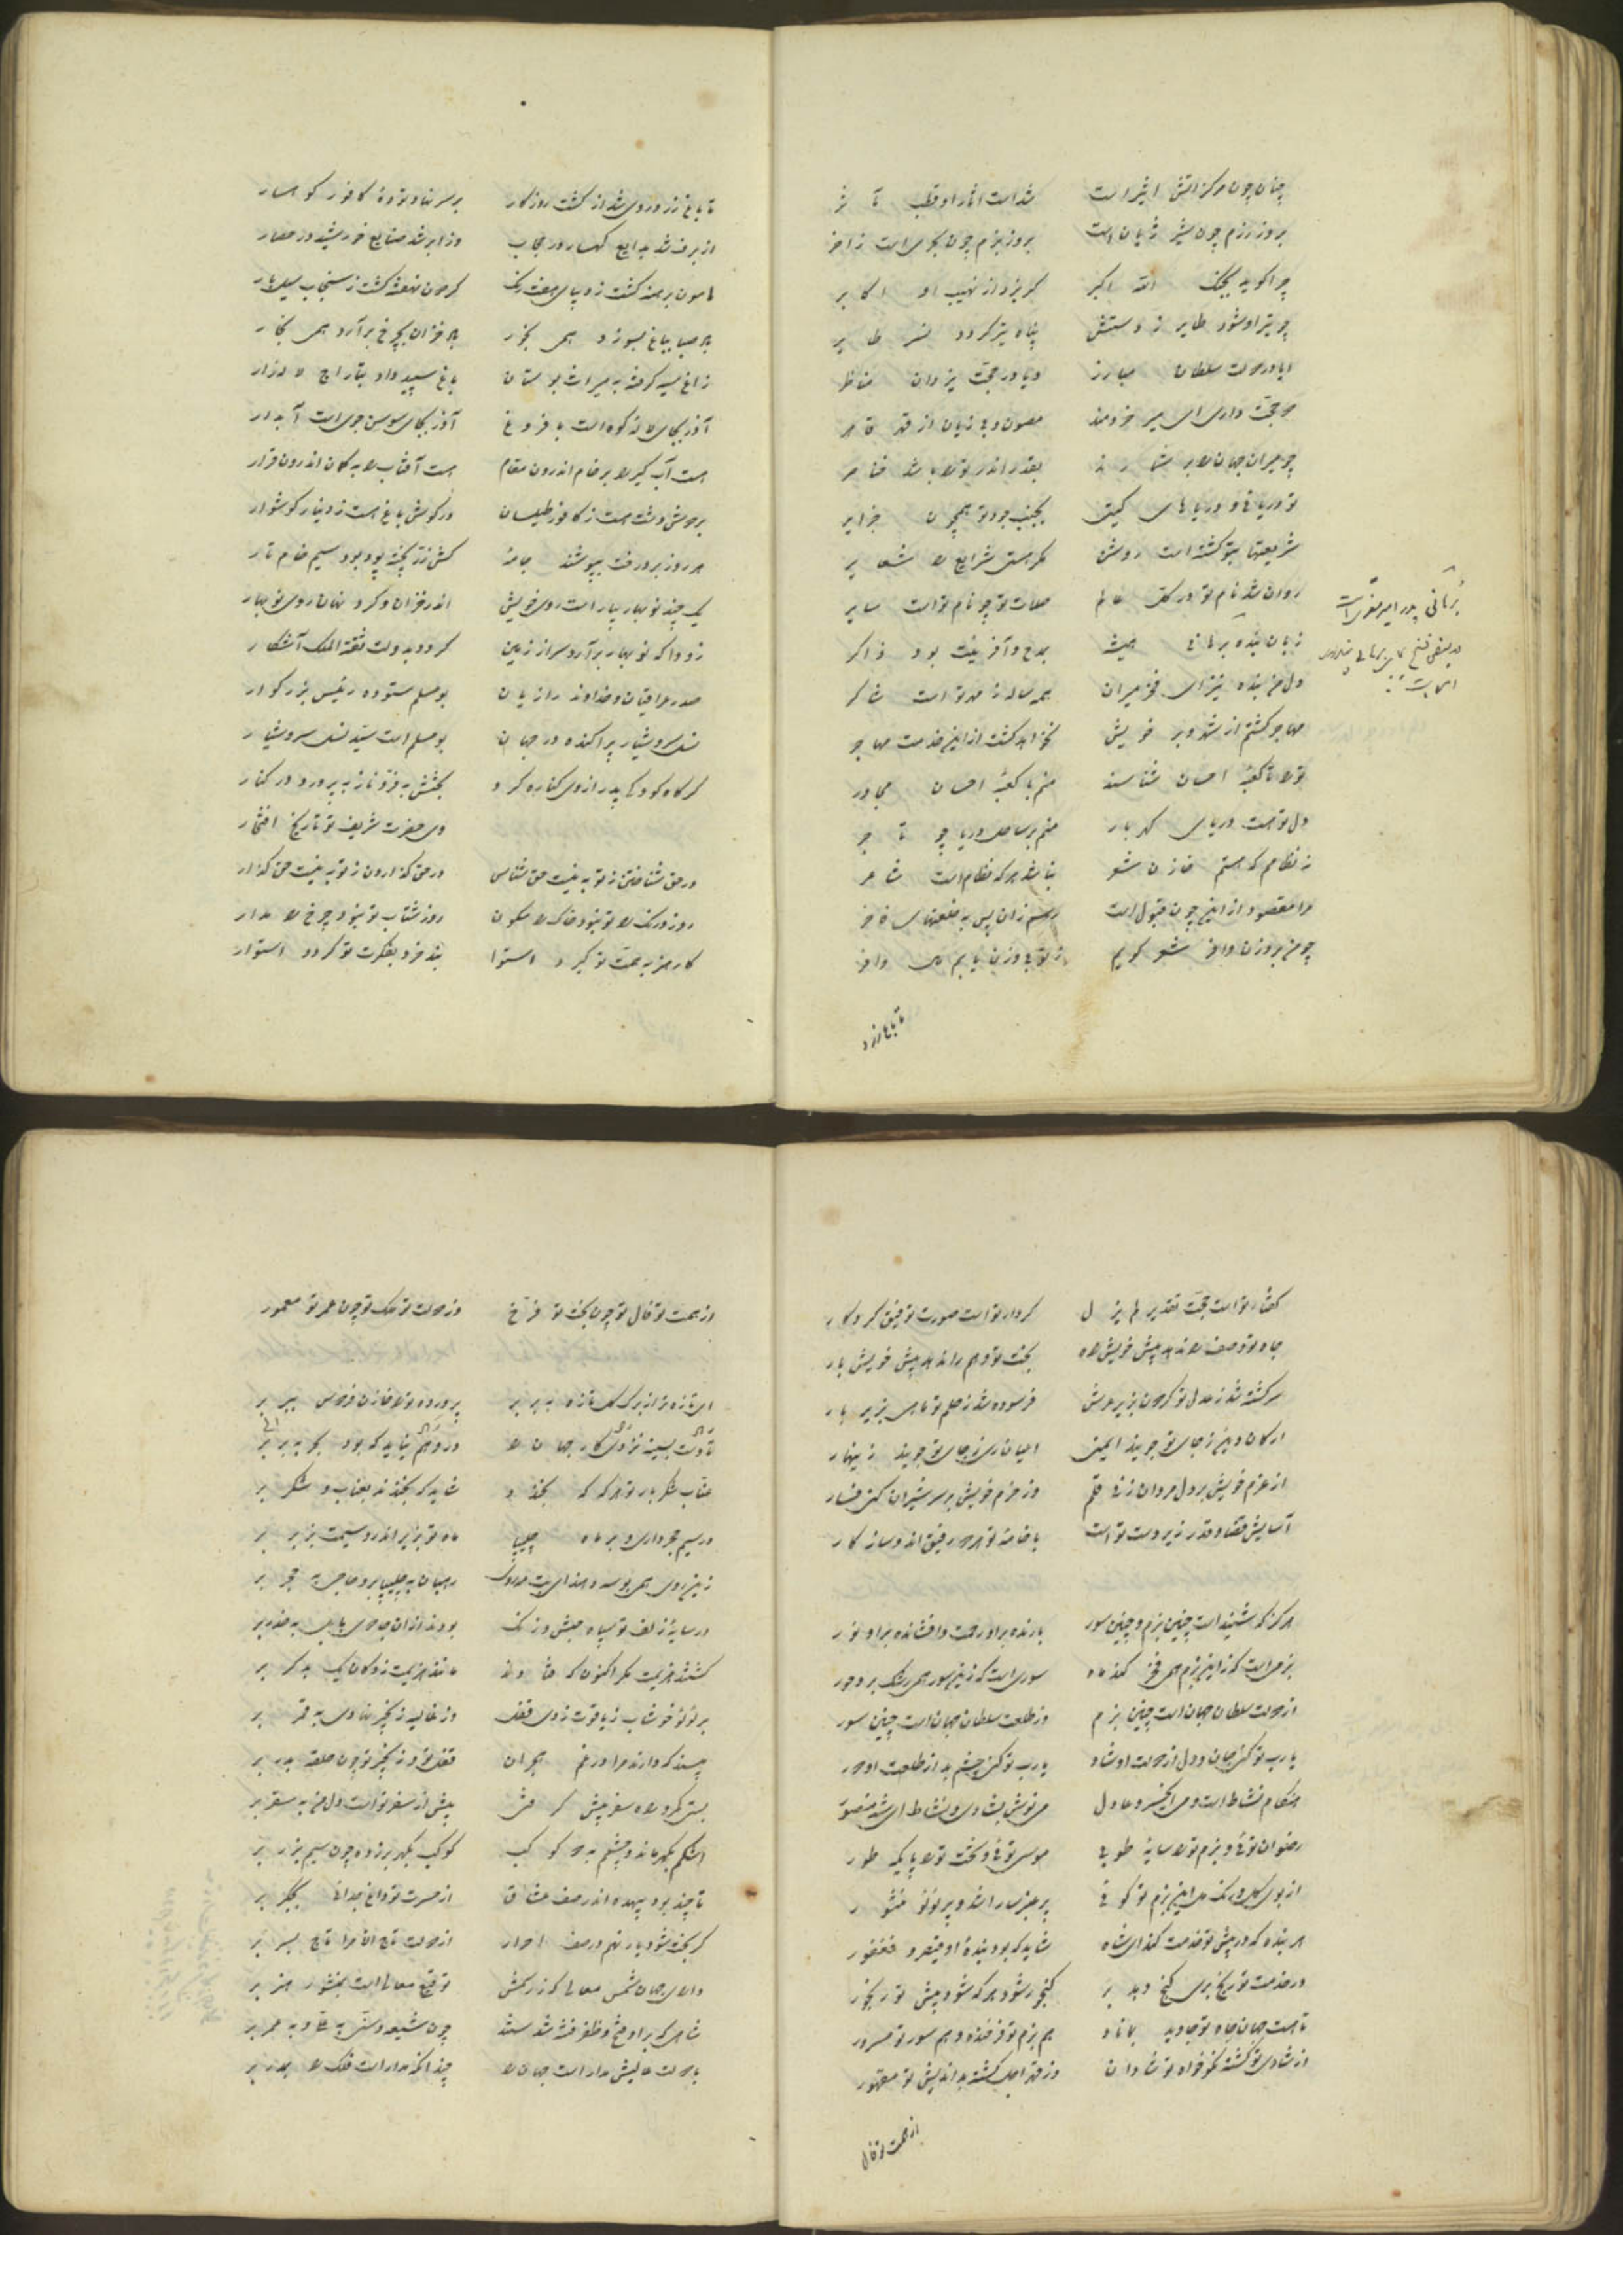 چنان چون مرکز آتش اثیر است شد است آثار او قطب مآثر
بروز رزم چون شیر ژیان است بروز بزم چون بحریست زاخر
چو او گوید بجنگ الله اکبر گریزد از نهیب او اکابر
چو تیر او شود طایر ز دستش پناه تیر گردد نسر طایر
ایا در دولت سلطان مبارز و یا در حجت یزدان مناظر
چو حجت داری ای میر خردمند مصون و بی زیان از قهر قاهر
چو میران جهان را بر شمارند بقدر اندر ترا باشد خناصر
تو دریائی و دریاهای گیتی بجنب جود تو همچون جزایر
شریعتها بتو گشته است روشن مگر هستی شرایع را شعایر
روان شد نام تو در کل عالم صلات تو چو نام تو است سایر
زبان بنده برهانی همیشه بمدح و آفرینت بود ذاکر
دل من بنده نیز ای فخر میران همه ساله ز مهر تو است شاکر
مهاجر گشتم از شهر و بر خویش نخواهد گشت ازین خدمت مهاجر
ترا تا کعبه احسان شناسند منم با کعبه احسان مجاور
دل تو هست دریای گهربار منم بر ساحل دریا چو تاجر
ز نظامم که هستم خازن شعر نباشد هر که نظام است شاعر
مرا مقصود ازین چون قبول است رسم زان پس به خلعتهای فاخر
چو من بر وزن وافر شعر گویم ز تو بی وزن یابم مال وافر
برهانی پدر امیر معزی است
تا باغ زرد
تا باغ زرد روی شد از گشت روزگار بر سر نهاد توده کافور کوهسار
از برف شد بدایع کهسار در حجاب وز ابر شد صنایع خورشید در حصار
هامون برهنه گشت ز دیبای هفت رنگ گردون نهفته گشت ز سنجاب سیل بار
باد صبا بباغ بسوزد همی بخور باد خزان بچرخ برآرد همی بخار
زاغ سیه گرفته به میراث بوستان باغ سپید داد بتاراج لاله‌زار
آذر بجای لاله کوه است با فروغ آذر بجای سوسن جوی است آبدار
هست آب گیر را بر خام اندرون مقام هست آفتاب را به کمان اندرون قرار
بر دوش دشت هست ز کافور طیلسان در گوش باغ هست ز دینار گوشوار
هر روز بر درخت بپوشند جامه کش زر پخته پود بود سیم خام تار
یک چند نوبهار بیاراست روی خویش اندر خزان و کرد نهان روی نوبهار
زودا که نوبهار برآرد سر از زمین گردد بدولت ثقة الملک آشکار
صدر عراقیان و خداوند رازیان بومسلم ستوده رئیس بزرگوار
نسل سروشیار پراکنده در جهان بومسلم است سید نسل سروشیار
گر گاه کودکی پدر از وی کناره کرد بختش به فر و ناز بپرورد در کنار
وی حضرت شریف تو تاریخ افتخار
در حق شناختن ز تو به نیست حق شناس در حق گذاردن ز تو به نیست حق گذار
روز درنگ را تو نبود خاک را سکون روز شتاب تو نبود چرخ را مدار
کار هنر به همت تو گیرد استوا بند خرد بفکرت تو گردد استوار
گفتار تو است حجت تقدیر لم یزل کردار تو است صورت توفیق کردگار
جاه تو وصف را ندهد پیش خویش راه بخت تو وهم را ندهد پیش خویش بار
سرگشته شد ز عدل تو گردون بزیر عرش فرسوده شد ز حلم تو ماهی بزیر بار
ارکان دین ز جاه تو جویند ایمنی اعیان ری ز جاه تو جویند زینهار
از عزم خویش بر دل مردان زنی قلم وز حزم خویش بر سر شیران کنی فسار
آسایش قضا و قدر زیر دست تو است با خامه تو هر دو رفیق اند و سازگار
هرگز که شنید است چنین بزم و چنین سور بارنده بر او رحمت و افشانده بر او نور
بزمی است کزین بزم همی فخر کند ماه سوری است کزین سور همی رشک برد حور
از دولت سلطان جهان است چنین بزم وز طلعت سلطان جهان است چنین سور
یارب تو کنی جان و دل از دولت او شاد یارب تو کنی چشم بد از طلعت او دور
هنگام نشاط است و می ای خسرو عادل می نوش بشادی و نشاط ای شه منصور
رضوان توئی و بزم تو را سایه طوبی موسی توئی و تخت تو را پایگه طور
از بوی گل و رنگ می این بزم تو گوئی پر عنبر سارا شد و پر لؤلؤ منثور
هر بنده که در پیش تو خدمت کند ای شاه شاید که بود بنده او قیصر و فغفور
در خدمت تو رنج بری گنج دهد بر گنجور شود هر که شود پیش تو رنجور
تا هست جهان جاه تو جاوید بماناد هم بزم تو فرخنده و هم سور تو مسرور
از شادی تو گشته نکوخواه تو شادان وز قهر اجل گشته بداندیش تو مقهور
از همت تو فال
از همت تو فال تو چون بخت تو فرخ وز دولت تو ملک تو چون عمر تو معمور
ای تازه‌تر از برگ گل تازه به بر بر پرورده ترا خازن فردوس ببر بر
عناب شکربار تو هر گه که بخندد شاید که بخندند بعناب و شکر بر
در سیم حجر داری و بر ماه چلیپا ماه تو بزیر اندر و سیمت بزبر بر
زین روی همی بوسه دهند ای بت مهروی رهبان به چلیپا بر و حاجی به حجر بر
در سایه زلف تو سپاه حبش و زنگ بودند از آن جادوی بابل به حذر بر
گشتند هزیمت مگر اکنون که فتادند مانند هزیمت زدگان یک بدگر بر
بر لؤلؤ خوشاب ز یاقوت زدی قفل وز غالیه زنجیر نهادی به قمر بر
مپسند که دارند مرا در غم هجران قفل تو و زنجیر تو چون حلقه بدر بر
بستی کمر و راه سفر پیش گرفتی پیش از سفر تو است دل من به سقر بر
اشکم بگهر ماند و چشمم به دو کوکب کوکب بگهر بر زده چون سیم بزر بر
تا چند بود بیهده اندر صف عشاق از حسرت تو داغ جدائی بجگر بر
گر بخت شود یار نهم در صف احرار از دولت تاج الامرا تاج بسر بر
والای جهان شمس معالی کز رسمش توقیع معالی است بمنشور هنر بر
شاهی که بر او فتح و ظفر فتنه شدستند چون شیعه و سنی به علی و به عمر بر
با دولت عالیش مدار است جهان را چندانکه مدار است فلک را بمدر بر